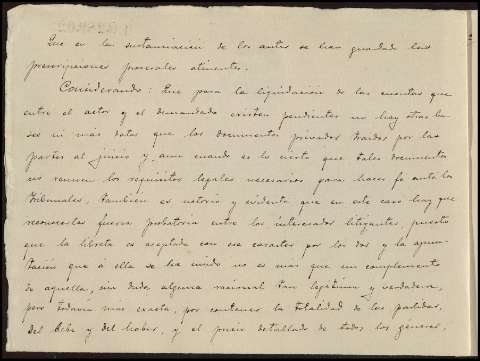 Que en la sustanciación de los autos se han guardado las
prescripciones procesales atinentes.
Considerando: Que para la liquidación de las cuentas que
entre el actor y el demandado existen pendientes no hay otras ba-
ses ni mas datos que los documentos privados traidos por las
partes al juicio y aun cuando es lo cierto que tales documentos
no reunen los requisitos legales necesarios para hacer fe ante los
Tribunales, tambien es notorio y evidente que en este caso hay que
reconocerles fuerza probatoria entre los interesados litigantes, puesto
que la libreta es aceptada con ese caracter por los dos y la apun-
tación que á ella se ha unido no es mas que un complemento
de aquella, sin duda alguna racional tan legitimo y verdadera,
pero todavia mas exacta, por contener la totalidad de las partidas,
del Debe y del haber, y el precio detallado de todos los generos,